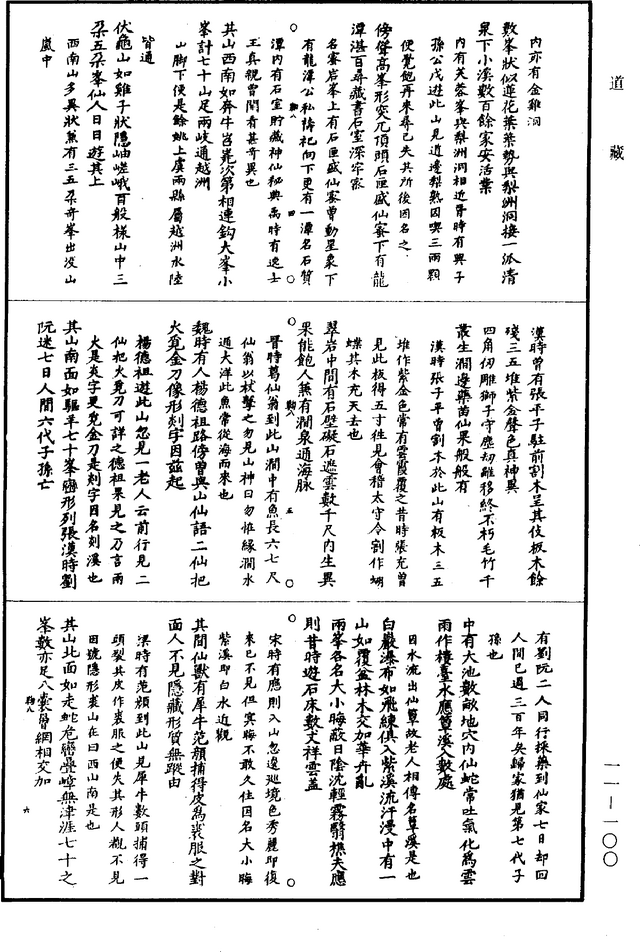 道藏
內亦有金雞洞
數峯狀似蓮花葉葉勢與梨洲洞接一派清
泉下小溪數百餘家安活業
內有芙蓉峯與梨洲洞相近晉時有興子
孫公戊遊此山見道邊梨熟因喫三兩顆
便覺飽再來尋已失其所後因名之
傍聳高峯形突兀頂頭石匣盛仙蜜下有龍
潭湛百尋藏書石室深窂密
名蜜岩峯上有石匣盛仙蜜曾動星象下
有龍潭公私禱祀向下更有一潭名石質
鞠八 四
潭內有石室貯藏神仙秘典禹時有逸士
王真親曾聞看甚奇異也
其山西南如奔牛岧嶤次第相連鈎大峯小
峯計七十山足兩岐通越洲
山脚下便是餘姚上虞兩縣屬越洲水陸
皆通
伏龜山如雞子狀隱岫嵯峨百般樣山中三
朵五朵峯仙人日日遊其上
西南山多異狀兼有三五朵奇峯出沒山
嵐中
漢時曾有張平子駐前割木呈其伎板木餘
殘三五堆紫金聲色真神異
四角仞雕獅子守塵劫雖移終不朽毛竹千
叢生澗邊藥苗仙果般般有
漢時張子平曾劉木於此山有板木三五
堆作紫金色常有雲霞覆之昔時張充曾
見此板得五寸徃見會稽太守令劉作蝴
蝶其木充天去也
翠岩中間有石壁礙石遮雲數千尺內生異
果能飽人兼有澗泉通海脉
鞠八 五
晉時葛仙翁到此山澗中有魚長六七尺
仙翁以杖擊之忽見山神曰勿恠緣澗水
通大洋此魚常從海而來也
魏時有人楊德祖路傍曾與山仙語二仙把
火覓金刀像形剡字因茲起
楊德祖遊此山忽見一老人云前行見二
仙把火覓刀可詳之德祖果見之乃言兩
火是炎字更覓金刀是剡字因名剡溪也
其山南面如驅羊七十峯巒形列張漢時劉
阮迷七日人間六代子孫亡
有劉阮二人同行採藥到仙家七日却回
人間已過三百年矣歸家猶見第七代子
孫也
中有大池數畝地穴內仙蛇常吐氣化爲雲
雨作樓臺水應簟溪人數處
因水流出仙簟故老人相傳名簟溪是也
白巖瀑布如飛練俱入紫溪流汗漫中有一
山如覆盆林木交加華卉亂
兩峯各名大小晦蔽日陰沈輕霧翳樵夫應
則昔時遊石床數丈祥雲蓋
宋時有應則入山忽遶巡境色秀麗即復
來已不見但寞晦不敢久住因名大小晦
紫溪即白水近觀
其間仙獸有犀牛范顏捕得皮爲裘服之對
面人不見隱藏形質無蹤由
梁時有范顏到此山見犀牛數頭捕得一
頭裂其皮作裘服之便失其形人覩不見
因號隱形裘山在曰西山南是也
其山北面如走蛇危巒疊嶂無津涯七十之
峯數亦足八囊晉網相交加
鞠八 六
一一—一〇〇